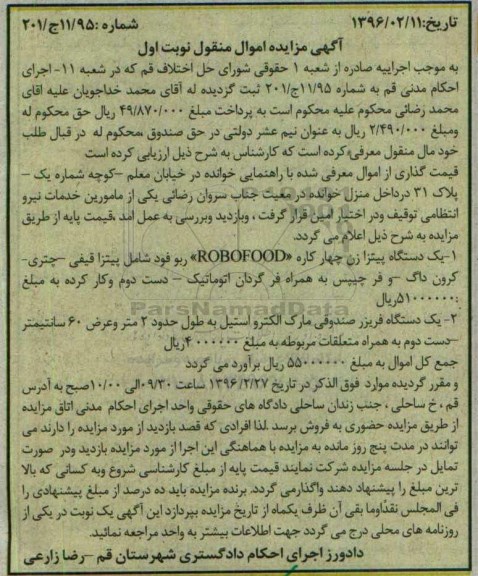 تاریخ:۱۳۹۶/۰۲/۱۱ شماره :۱۱/۹۵ج/۲۰۱
آگهی مزایده اموال منقول نوبت اول
به موجب اجراییه صادره از شعبه ۱ حقوقی شورای حل اختلاف قم که در شعبه ۱۱- اجرای
احکام مدنی قم به شماره ۱۱/۹۵ج/۲۰۱ ثبت گردیده له آقای محمد خداجویان علیه اقای
محمد رضائی محکوم علیه محکوم است به پرداخت مبلغ ۴۹/۸۷۰/۰۰۰ ریال حق محکوم له
ومبلغ ۲/۴۹۰/۰۰۰ ریال به عنوان نیم عشر دولتی در حق صندوق ،محکوم له در قبال طلب
خود مال منقول معرفی کرده است که کارشناس به شرح ذیل ارزیابی کرده است
قیمت گذاری از اموال معرفی شده با راهنمایی خوانده در خیابان معلم –کوچه شماره یک –
پلاک ۳۱ درداخل منزل خوانده در معیت جناب سروان رضائی یکی از مامورین خدمات نیرو
انتظامی توقیف ودر اختیار امین قرار گرفت ، وبازدید وبررسی به عمل امد ،قیمت پایه از طریق
مزایده به شرح ذیل اعلام می گردد.
۱-یک دستگاه پیتزا زن چهار کاره «ROBOFOOD» ربو فود شامل پیتزا قیفی –چتری-
کرون داگ –و فر چیپس به همراه فر گردان اتوماتیک – دست دوم وکار کرده به مبلغ
:۵۱۰۰۰۰۰۰ریال
۲- یک دستگاه فریزر صندوقی مارک الکترو استیل به طول حدود ۲ متر وعرض ۶۰ سانتیمتر
–دست دوم به همراه متعلقات مربوطه به مبلغ ۴۰۰۰۰۰۰ریال
جمع کل اموال به مبلغ ۵۵۰۰۰۰۰۰ ریال برآورد می گردد
و مقرر گردیده موارد فوق الذکر در تاریخ ۱۳۹۶/۲/۲۷ ساعت ۰۹/۳۰الی ۱۰/۰۰صبح به آدرس
قم ، خ ساحلی ، جنب زندان ساحلی دادگاه های حقوقی واحد اجرای احکام مدنی اتاق مزایده
از طریق مزایده حضوری به فروش برسد .لذا افرادی که قصد بازدید از مورد مزایده را دارند می
توانند در مدت پنج روز مانده به مزایده با هماهنگی این اجرا از مورد مزایده بازدید ودر صورت
تمایل در جلسه مزایده شرکت نمایند قیمت پایه از مبلغ کارشناسی شروع وبه کسانی که بالا
ترین مبلغ را پیشنهاد دهند واگذارمی گردد. برنده مزایده باید ده درصد از مبلغ پیشنهادی را
فی المجلس نقدا‌وما بقی آن ظرف یکماه از تاریخ مزایده بپردازد این آگهی یک نوبت در یکی از
روزنامه های محلی درج می گردد جهت اطلاعات بیشتر به واحد مراجعه نمائید.
دادورز اجرای احکام دادگستری شهرستان قم –رضا زارعی
ParsNamadData